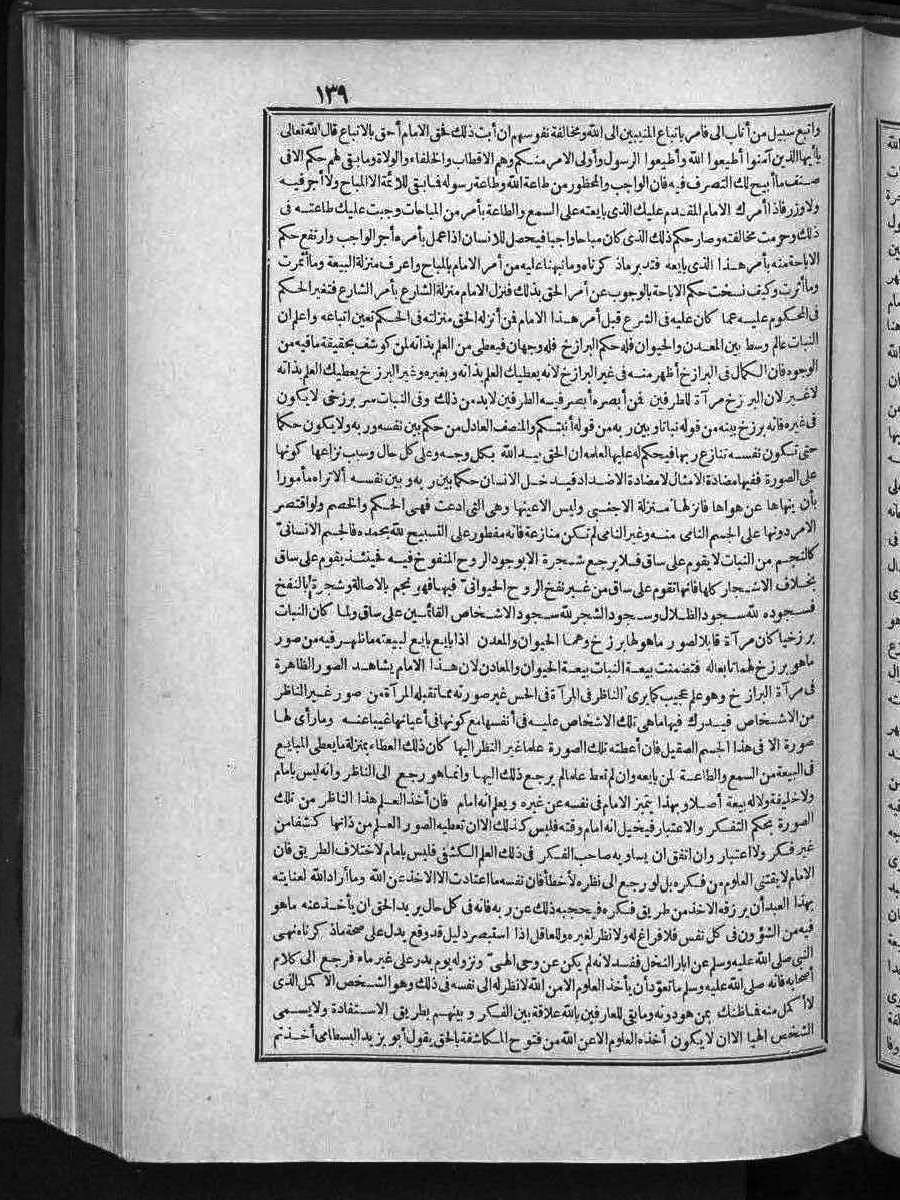 ١٣٩
واتبع سبيل من أناب الى فامر باتباع المنيبين الى الله ومخالفة نفوسهم ان أبت ذلك فحق الامام أحق بالاتباع قال الله تعالى
يا أيها الذين آمنوا أطيعوا الله وأطيعوا الرسول وأولى الامر منكم وهم الاقطاب والخلفاء والولاة وما بقى لهم حكم الا فى
صنف ما أبيح لك التصرف فيه فان الواجب والمحظور من طاعة الله وطاعة رسوله فما بقى للائمة الا المباح ولا أجر فيه
ولا وزر فاذا أمرك الامام المقدم عليك الذى بايعته على السمع والطاعة بأمر من المباحات وجبت عليك طاعته فى
ذلك وحرمت مخالفته وصار حكم ذلك الذى كان مباحا واجبا فيحصل للانسان اذا عمل بأمره أجر الواجب وارتفع حكم
الاباحة منه بأمر هذا الذى بايعه فتدبر ما ذكرناه وما نبهنا عليه من أمر الامام بالمباح واعرف منزلة البيعة وما أثمرت
وما أثرت وكيف نسخت حكم الاباحة بالوجوب عن أمر الحق بذلك فنزل الامام منزلة الشارع بأمر الشارع فتغير الحكم
فى المحكوم عليه عما كان عليه فى الشرع قبل أمر هذا الامام فمن أنزله الحق منزلته فى الحكم تعين اتباعه واعلم ان
النبات عالم وسط بين المعدن والحيوان فله حكم البرازخ فله وجهان فيعطى من العلم بذاته لمن كوشف بحقيقة ما فيه من
الوجوه فان الكمال فى البرازخ أظهر منه فى غير البرازخ لانه يعطيك العلم بذاته وبغيره وغير البرزخ يعطيك العلم بذاته
لا غير لان البرزخ مرآة للطرفين فمن أبصره أبصر فيه الطرفين لا بد من ذلك وفى النبات سر برزخى لا يكون
فى غيره فانه برزخ بينه من قوله نباتا وبين ربه من قوله أنبتكم والمنصف العادل من حكم بين نفسه وربه ولا يكون حكما
حتى تكون نفسه تنازع ربها فيحكم له عليها لعلمه ان الحق بيد الله بكل وجه وعلى كل حال وسبب نزاعها كونها
على الصورة ففيها مضادة الامثال لا مضادة الاضداد فيدخل الانسان حكما بين ربه وبين نفسه ألا تراه مأمورا
بأن ينهاها عن هواها فانزلها منزلة الاجنبى وليس الا عينها وهى التى ادعت فهى الحكم والخصم ولو اقتصر
الامر دونها على الجسم النامى منه وغير النامى لم تكن منازعة فانه مفطور على التسبيح لله بحمده فالجسم الانسانىّ
كالنجم من النبات لا يقوم على ساق فلا يرجع شجرة الا بوجود الروح المنفوخ فيه فحينئذ يقوم على ساق
بخلاف الاشجار كلها فانها تقوم على ساق من غير نفخ الروح الحيوانىّ فيها فهو نجم بالاصالة وشجرة بالنفخ
فسجوده لله سجود الظلال وسجود الشجر لله سجود الاشخاص القائمين على ساق ولما كان النبات
برزخيا كان مرآة قابلا لصور ما هو لها برزخ وهما الحيوان والمعدن اذا بايع بايع لبيعته ما ظهر فيه من صور
ما هو برزخ لهما تابعا له فتضمنت بيعة النبات بيعة الحيوان والمعادن لان هذا الامام يشاهد الصور الظاهرة
فى مرآة البرازخ وهو علم عجيب كما يرى الناظر فى المرآة فى الحس غير صورته مما تقبله المرآة من صور غير الناظر
من الاشخاص فيدرك فيها ما هى تلك الاشخاص عليه فى أنفسها مع كونها فى أعيانها غيبا عنه وما رأى لها
صورة الا فى هذا الجسم الصقيل فان أعطته تلك الصورة علما غير النظر اليها كان ذلك العطاء بمنزلة ما يعطى المبايع
فى البيعة من السمع والطاعة لمن بايعه وان لم تعط علما لم يرجع ذلك اليها وانما هو رجع الى الناظر وانه ليس بامام
ولا خليفة ولا له بيعة أصلا وبهذا يتميز الامام فى نفسه عن غيره ويعلم انه امام فان أخذ العلم هذا الناظر من تلك
الصورة بحكم التفكر والاعتبار فيخيل انه امام وقته فليس كذلك الا ان تعطيه الصور العلم من ذاتها كشفا من
غير فكر ولا اعتبار وان اتفق ان يساويه صاحب الفكر فى ذلك العلم الكشفى فليس بامام لاختلاف الطريق فان
الامام لا يقتنى العلوم من فكره بل لو رجع الى نظره لأخطأ فان نفسه ما اعتادت الا الاخذ عن الله وما أراد الله لعنايته
بهذا العبد أن يرزقه الاخذ من طريق فكره فيحجبه ذلك عن ربه فانه فى كل حال يريد الحق ان يأخذ عنه ما هو
فيه من الشؤون فى كل نفس فلا فراغ له ولا نظر لغيره وللعاقل اذا استبصر دليل قد وقع يدل على صحة ما ذكرناه نهى
النبى صلى الله عليه وسلم عن ابار النخل ففسد لانه لم يكن عن وحى الهىّ ونزوله يوم بدر على غير ماء فرجع الى كلام
أصحابه فانه صلى الله عليه وسلم ما تعوّد أن يأخذ العلوم الا من الله لا نظر له الى نفسه فى ذلك وهو الشخص الاكمل الذى
لا أكمل منه فما ظنك بمن هو دونه وما بقى للعارفين بالله علاقة بين الفكر وبينهم بطريق الاستفادة ولا يسمى
الشخص الهيا الا ان لا يكون أخذه العلوم الا عن الله من فتوح المكاشفة بالحق يقول أبو يزيد البسطامى أخذتم